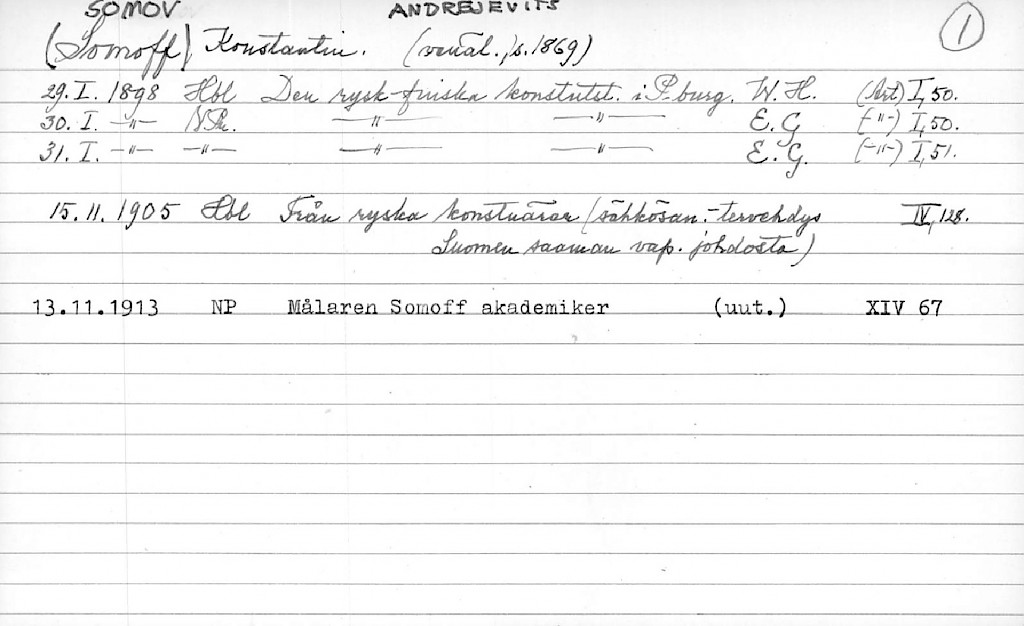 SOMOV ANDREJEVITS
(Somoff) Konstantin. (venäl., s. 1869) 1
29. I. 1898 Hbl Den rysk-finska konstutst. i P.burg. W. H. (Art) I, 50.
30. I. —"— N.Pr. —"— —"— E. G (-"-) I, 50.
31. I. —"— —"— —"— —"— E. G. (-"-) I, 51.
15. 11. 1905 Hbl Från ryska konstnärer (sähkösan.-tervehdys IV, 128.
Suomen saaman vap. johdosta)
13.11.1913 NP Målaren Somoff akademiker (uut.) XIV 67